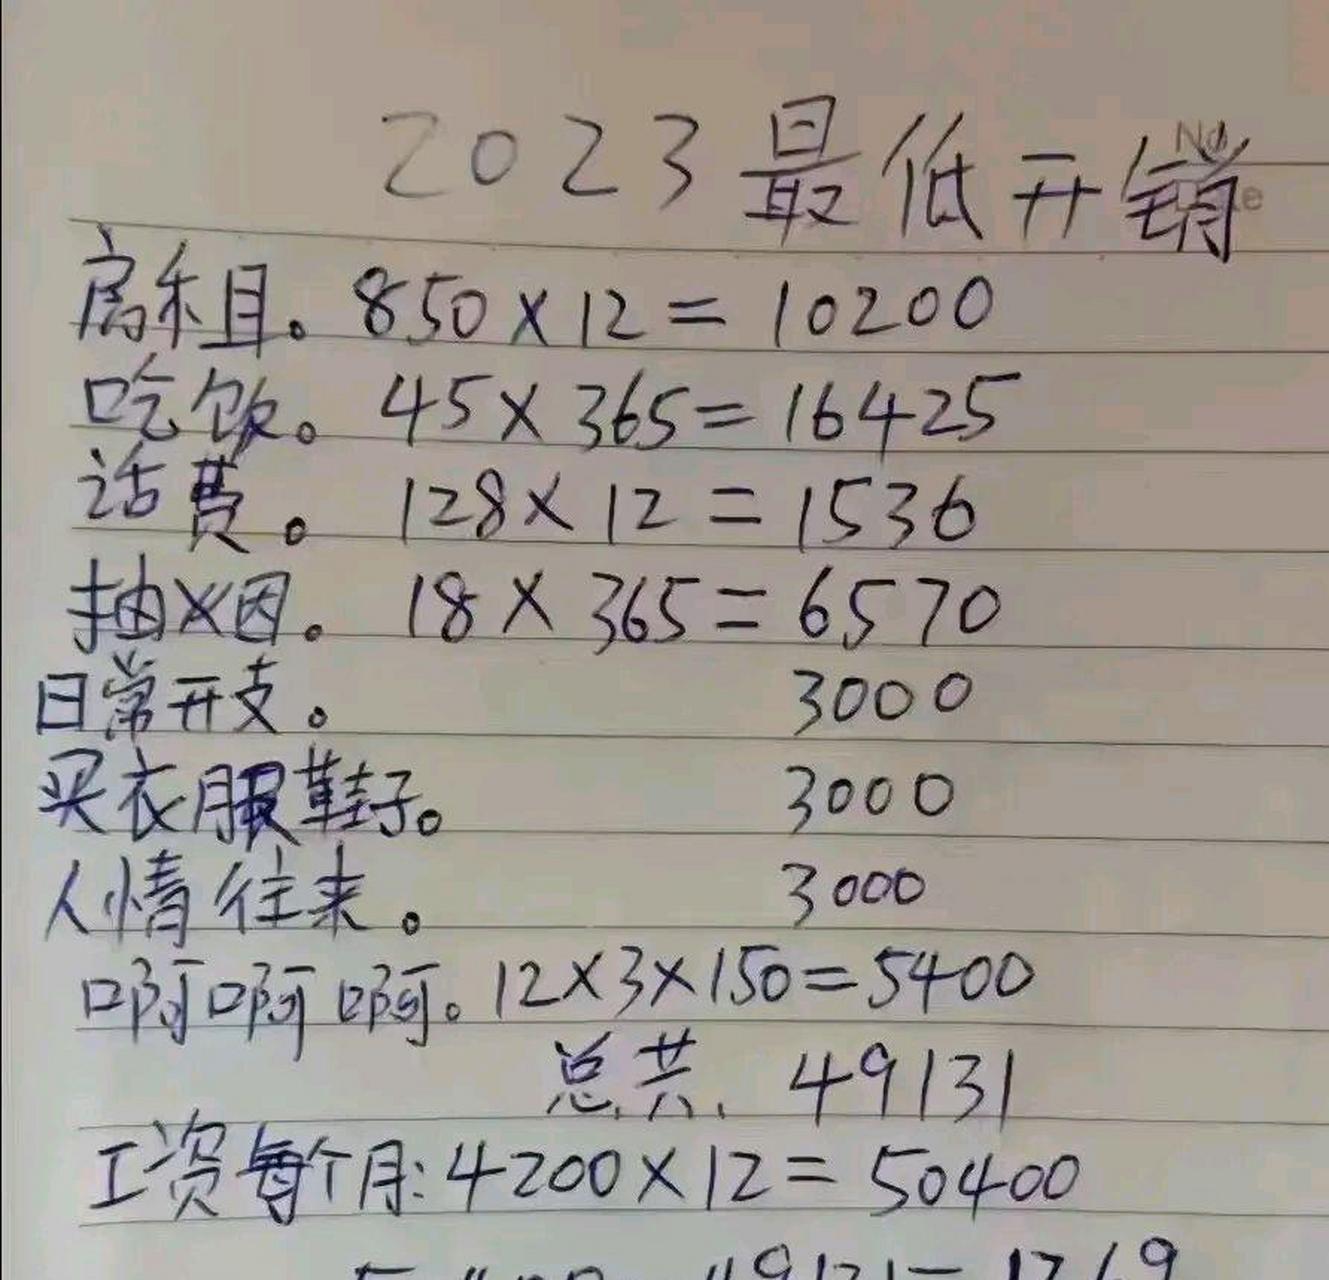 2023最低开销
房租。850×12=10200
吃饭。45×365=16425
话费。128×12=1536
抽烟。18×365=6570
日常开支。3000
买衣服鞋子。3000
人情往来。3000
啊啊啊。12×3×150=5400
总共、49131
工资每个月:4200×12=50400